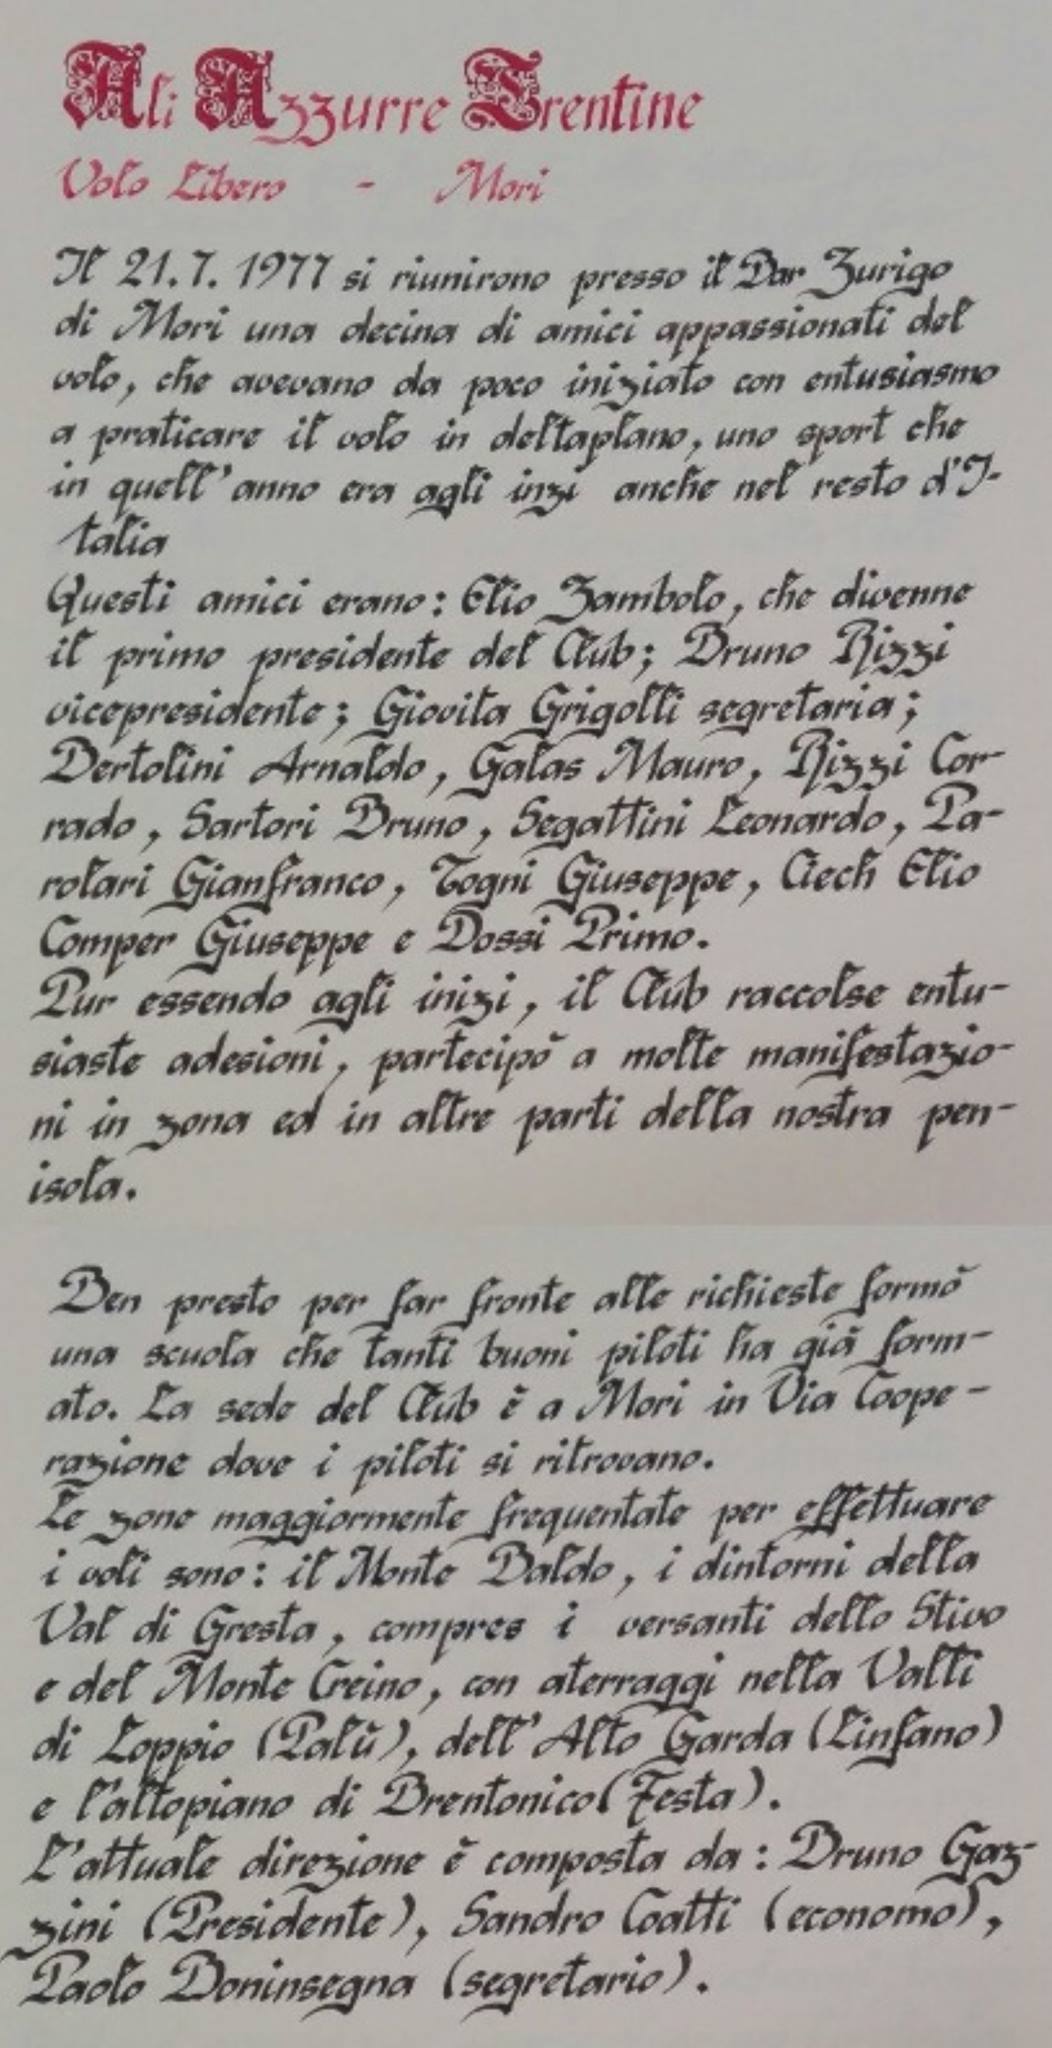 Ali Azzurre Trentine
Volo Libero - Mori
Il 21.7.1977 si riunirono presso il Bar Zurigo
di Mori una decina di amici appassionati del
volo, che avevano da poco iniziato con entusiasmo
a praticare il volo in deltaplano, uno sport che
in quell'anno era agli inzi anche nel resto d'I-
talia
Questi amici erano: Elio Zambolo, che divenne
il primo presidente del Club; Bruno Rizzi
vicepresidente; Giovita Grigolli segretaria;
Bertolini Arnaldo, Galas Mauro, Rizzi Cor-
rado, Sartori Bruno, Segattini Leonardo, Pa-
rolari Gianfranco, Togni Giuseppe, Ciech Elio
Comper Giuseppe e Dossi Primo.
Pur essendo agli inizi, il Club raccolse entu-
siaste adesioni, partecipò a molte manifestazio-
ni in zona ed in altre parti della nostra pen-
isola.
Ben presto per far fronte alle richieste formò
una scuola che tanti buoni piloti ha già form-
ato. La sede del Club è a Mori in Via Coope-
razione dove i piloti si ritrovano.
Le zone maggiormente frequentate per effettuare
i voli sono: il Monte Baldo, i dintorni della
Val di Gresta, compres i versanti dello Stivo
e del Monte Creino, con aterraggi nella Valli
di Loppio (Palù), dell'Alto Garda (Linfano)
e l'altopiano di Brentonico (Festa).
L'attuale direzione è composta da: Bruno Gaz-
zini (Presidente), Sandro Coatti (economo),
Paolo Boninsegna (segretario).